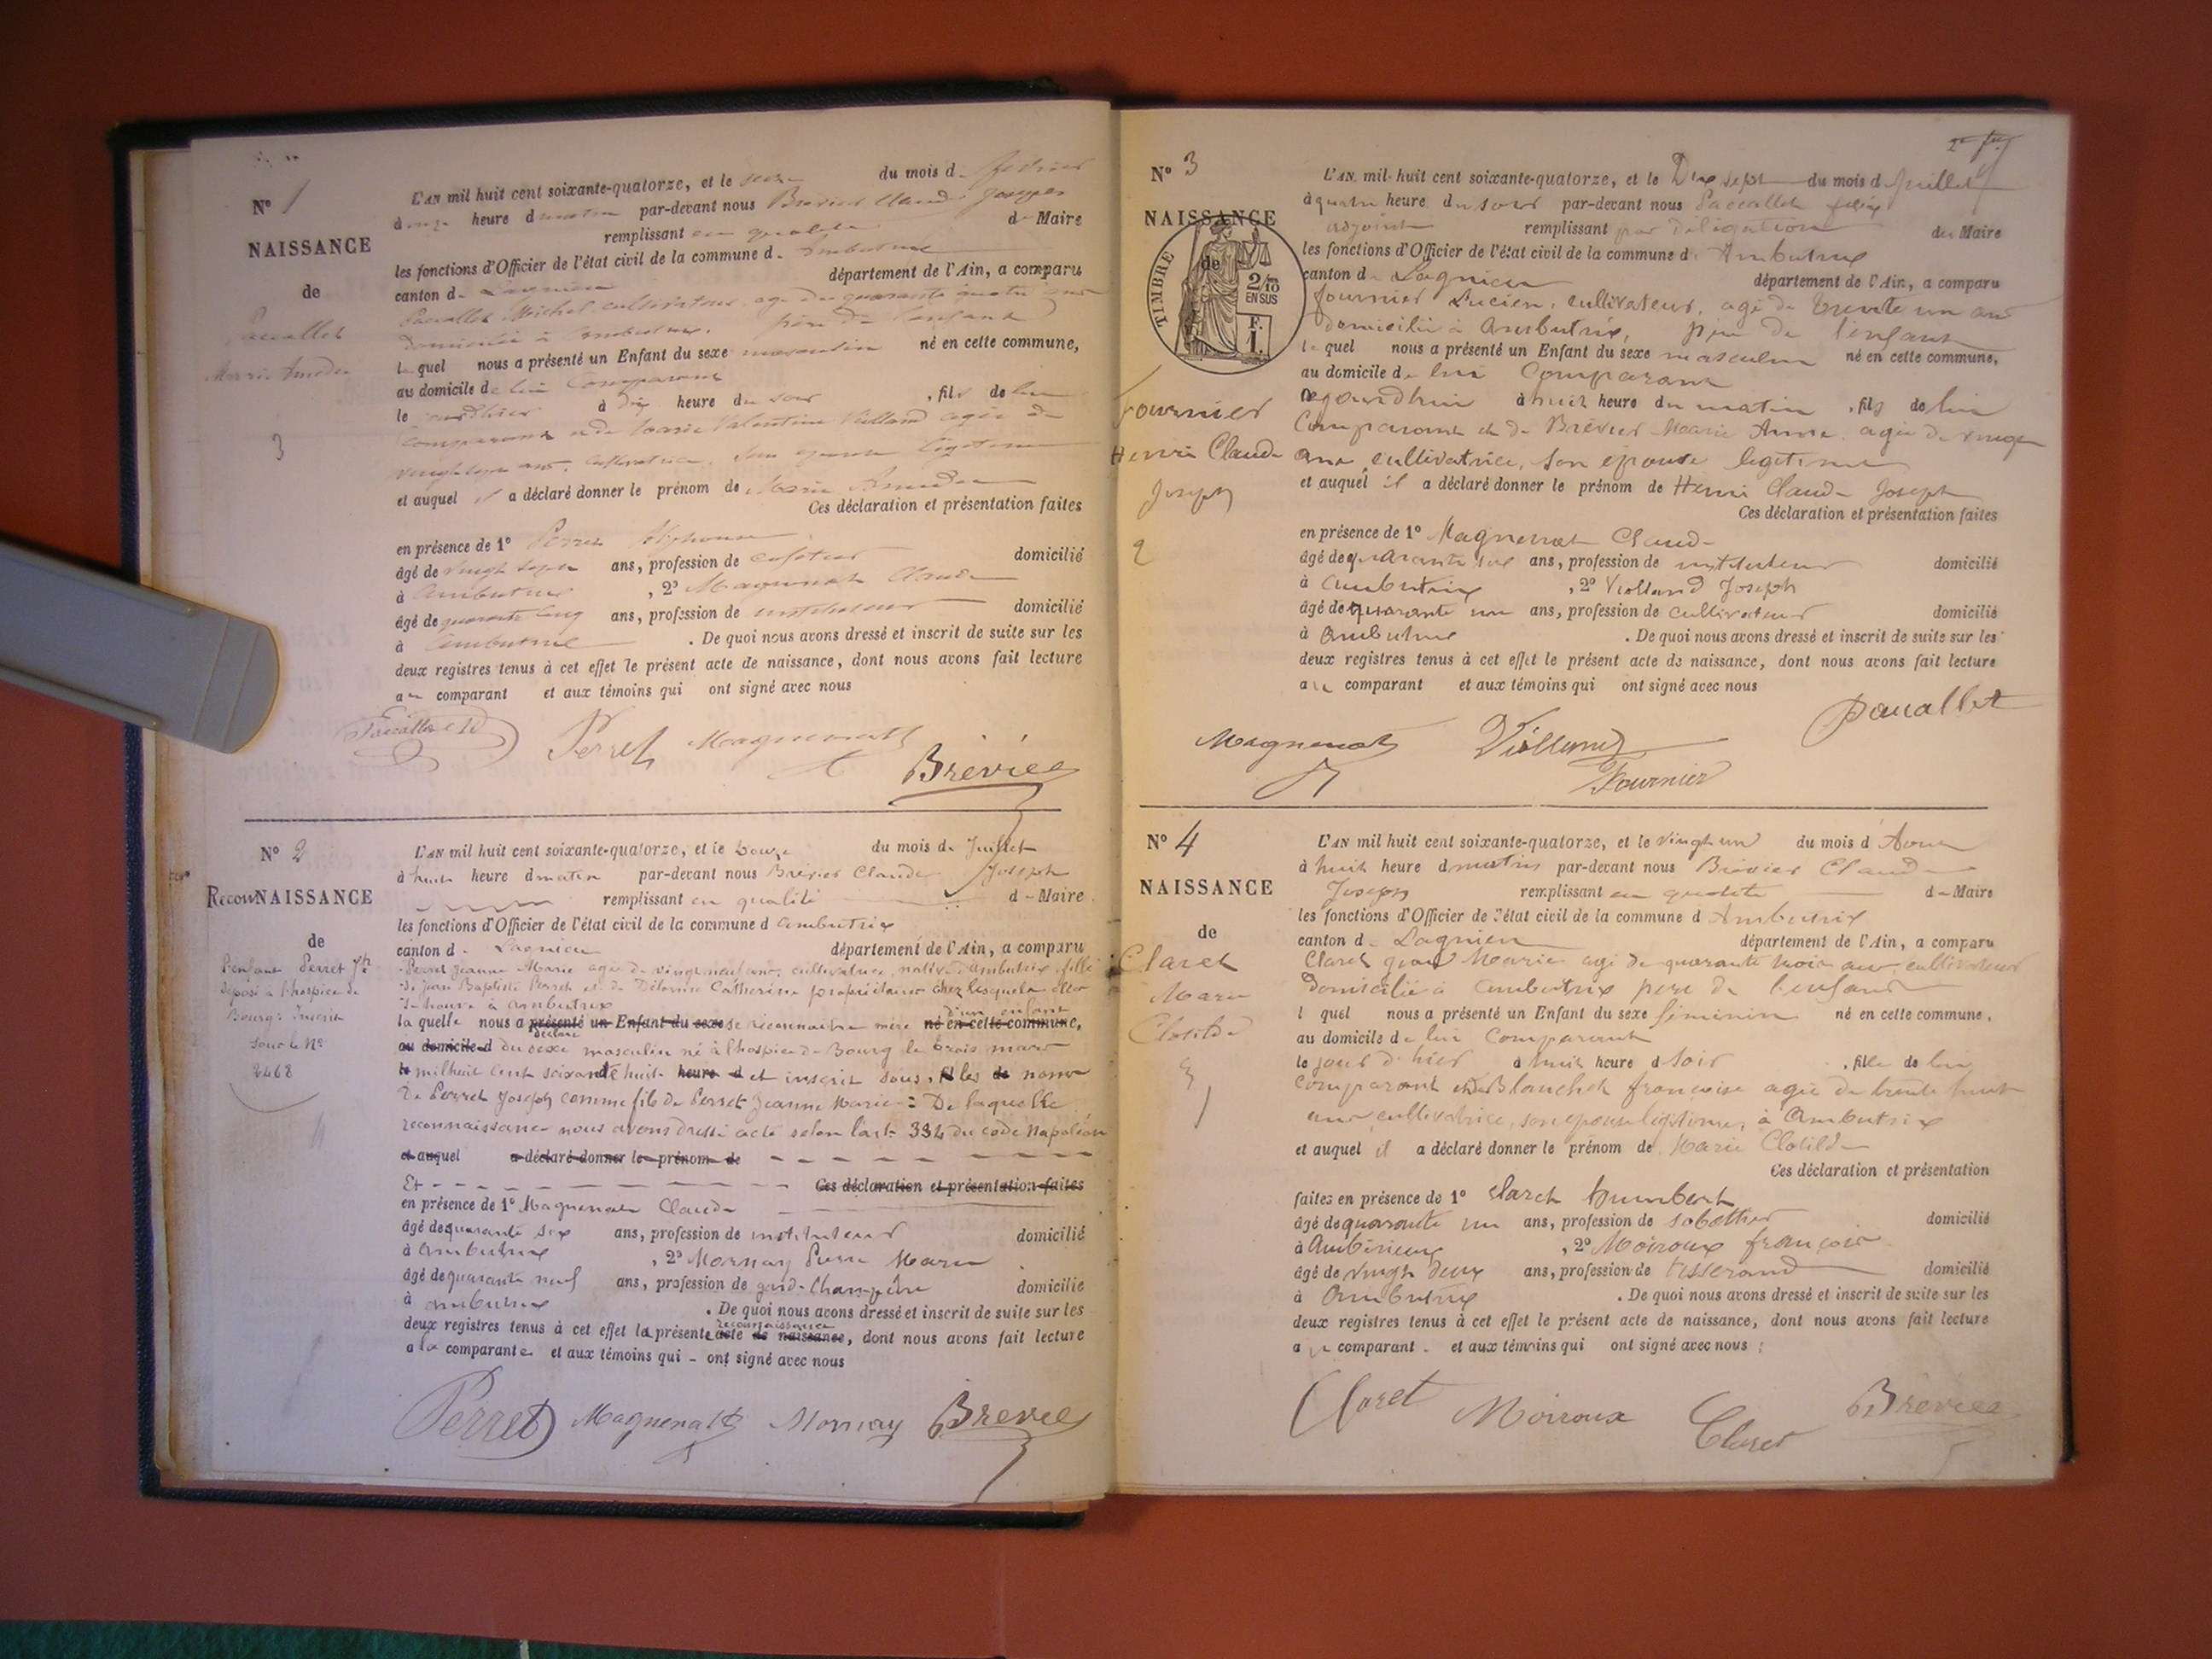 N° 1
NAISSANCE
de
Paccallet
Marie Amédée
3
L'AN mil huit cent soixante-quatorze, et le seize du mois de février
à onze heure du matin par-devant nous Brévier Claude Joseph
remplissant en qualité de Maire
les fonctions d'Officier de l'état civil de la commune d. Ambutrix
canton de Lagnieu département de l'Ain, a comparu
Paccallet Michel cultivateur, agé de quarante quatre ans
domicilié à Ambutrix, père de l'enfant
lequel nous a présenté un Enfant du sexe masculin né en cette commune,
au domicile de lui comparant
le à dix heure du soir, fils de lui
comparant et de Marie Valentine Villand agée de
vingt sept ans, cultivatrice, son épouse légitime
et auquel il a déclaré donner le prénom de Marie Amédée
Ces déclaration et présentation faites
en présence de 1° Perret Alphonse
âgé de vingt sept ans, profession de cafetier domicilié
à Ambutrix, 2° Magnenat Claude
âgé de quarante cinq ans, profession de instituteur domicilié
à Ambutrix. De quoi nous avons dressé et inscrit de suite sur les
deux registres tenus à cet effet le présent acte de naissance, dont nous avons fait lecture
au comparant et aux témoins qui ont signé avec nous
Paccallet Perret Magnenat
Brévier
N° 2
ReconNAISSANCE
de
l'enfant Perret Jh
déposé à l'hospice de
Bourg: Inscrit
sous le N°
2468
L'AN mil huit cent soixante-quatorze, et le douze du mois de Juillet
à huit heure du matin par-devant nous Brévier Claude Joseph
remplissant en qualité de Maire
les fonctions d'Officier de l'état civil de la commune d Ambutrix
canton de Lagnieu département de l'Ain, a comparu
Perret Jeanne Marie agée de vingt neuf ans, cultivatrice, native d'Ambutrix, fille
de Jean Baptiste Perret et de Catherine propriétaires chez lesquels elle
se trouve à Ambutrix
d'un enfant
la quelle nous a présenté un Enfant du sexe se reconnaitre mère né en cette commune,
déclaré
au domicile d du sexe masculin né à l'hospice de Bourg le trois mars
le mil huit cent soixante huit heure d et inscrit sous, fil les de noms
de Perret Joseph comme fils de Perret Jeanne Marie: De laquelle
reconnaissance nous avons dressé acte selon l'art. 334 du code Napoléon
et auquel a déclaré donner le prénom de
Et Ces déclaration et présentation faites
en présence de 1° Magnenat Claude
âgé de quarante six ans, profession de instituteur domicilié
à Ambutrix, 2° Mornay Pierre Marie
âgé de quarante neuf ans, profession de garde-Champêtre domicilié
à Ambutrix. De quoi nous avons dressé et inscrit de suite sur les
reconnaissance
deux registres tenus à cet effet la présente acte de naissance, dont nous avons fait lecture
a la comparante et aux témoins qui - ont signé avec nous
Perret Magnenat Mornay Brévier
N° 3
NAISSANCE
de
TIMBRE
2/10
EN SUS
F.
1.
Fournier
Henri Claude
Joseph
2
L'AN mil huit cent soixante-quatorze, et le Dix sept du mois de Juillet
à quatre heure du soir par-devant nous Paccallet félix
adjoint remplissant par délégation du Maire
les fonctions d'Officier de l'état civil de la commune d. Ambutrix
canton de Lagnieu département de l'Ain, a comparu
fournier Lucien, cultivateur, agé de trente un ans
domicilié à Ambutrix, père de l'enfant
lequel nous a présenté un Enfant du sexe masculin né en cette commune,
au domicile de lui Comparant
cejourd'hui à huit heure du matin, fils de lui
Comparant et de Brévier Marie Anne agée de vingt
ans, cultivatrice, son épouse légitime
et auquel il a déclaré donner le prénom de Henri Claude Joseph
Ces déclaration et présentation faites
en présence de 1° Magnenat Claude
âgé de quarante six ans, profession de instituteur domicilié
à Ambutrix, 2° Violland Joseph
âgé de quarante un ans, profession de cultivateur domicilié
à Ambutrix. De quoi nous avons dressé et inscrit de suite sur les
deux registres tenus à cet effet le présent acte de naissance, dont nous avons fait lecture
au comparant et aux témoins qui ont signé avec nous
paccallet
Magnenat Violland
Fournier
N° 4
NAISSANCE
de
Claret
Marie
Clotilde
3
L'AN mil huit cent soixante-quatorze, et le vingt un du mois d'Aout
à huit heure du matin par-devant nous Brévier Claude
Joseph remplissant en qualité de Maire
les fonctions d'Officier de l'état civil de la commune d Ambutrix
canton de Lagnieu département de l'Ain, a comparu
Claret Marie agé de quarante trois ans, cultivateur
domicilié à Ambutrix père de l'enfant
l quel nous a présenté un Enfant du sexe féminin né en cette commune,
au domicile de lui Comparant
le jour d'hier à huit heure d soir, fille de lui
Comparant et de Blanchet françoise agée de trente huit
ans cultivatrice, son épouse légitime, à Ambutrix
et auquel il a déclaré donner le prénom de Marie Clotilde
Ces déclaration et présentation
faites en présence de 1° Claret humbert
âgé de quarante un ans, profession de sabottier domicilié
à Ambérieux, 2° Moiroux françois
âgé de vingt deux ans, profession de tisserand domicilié
à Ambutrix. De quoi nous avons dressé et inscrit de suite sur les
deux registres tenus à cet effet le présent acte de naissance, dont nous avons fait lecture
au comparant et aux témoins qui ont signé avec nous:
Claret Moiroux Claret Brévier